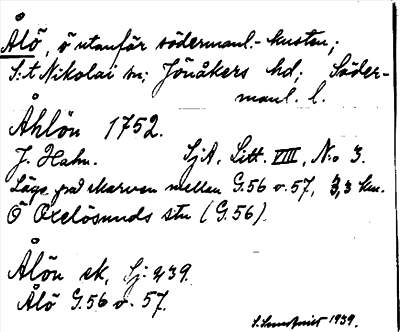 Ålö, ö utanför södermanl.-kusten;
S:t Nikolai sn; Jönåkers hd; Söder-
manl. l.
Åhlön 1752.
J. Hahn. SjA, Litt. VIII, N:o 3.
Läge på skarven mellan G.56 o. 57, 3,3 km.
Ö Oxelösunds stn (G.56).
Ålön ek, Sj: 239.
Ålö G.56 o. 57.
1939.